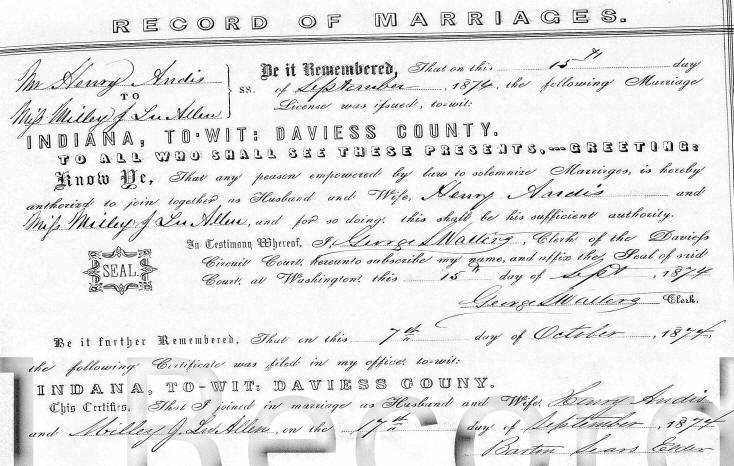 RECORD OF MARRIAGES.
Mr Henry Andis
TO
Miss Milley J LuAllen
ss.
Be it Remembered, That on this 15th day
of September, 1874, the following Marriage
License was issued, to-wit:
INDIANA, TO-WIT: DAVIESS COUNTY.
TO ALL WHO SHALL SEE THESE PRESENTS,---GREETING:
Know Ye, That any person empowered by law to solemnize Marriages, is hereby
authorized to join together as Husband and Wife, Henry Andis and
Miss Milley J LuAllen, and for so doing, this shall be his sufficient authority.
SEAL.
In Testimony Whereof, I, George S Walters, Clerk of the Daviess
Circuit Court, hereunto subscribe my name, and affix the Seal of said
Court, at Washington, this 15th day of Sept, 1874
George S Walters Clerk.
Be it further Remembered, That on this 7th day of October, 1874,
the following Certificate was filed in my office, to-wit:
INDANA, TO-WIT: DAVIESS COUNY.
This Certifies, That I joined in marriage as Husband and Wife, Henry Andis
and Milley J. LuAllen, on the 17th day of September, 1874
Bartin Sears Elder
Record